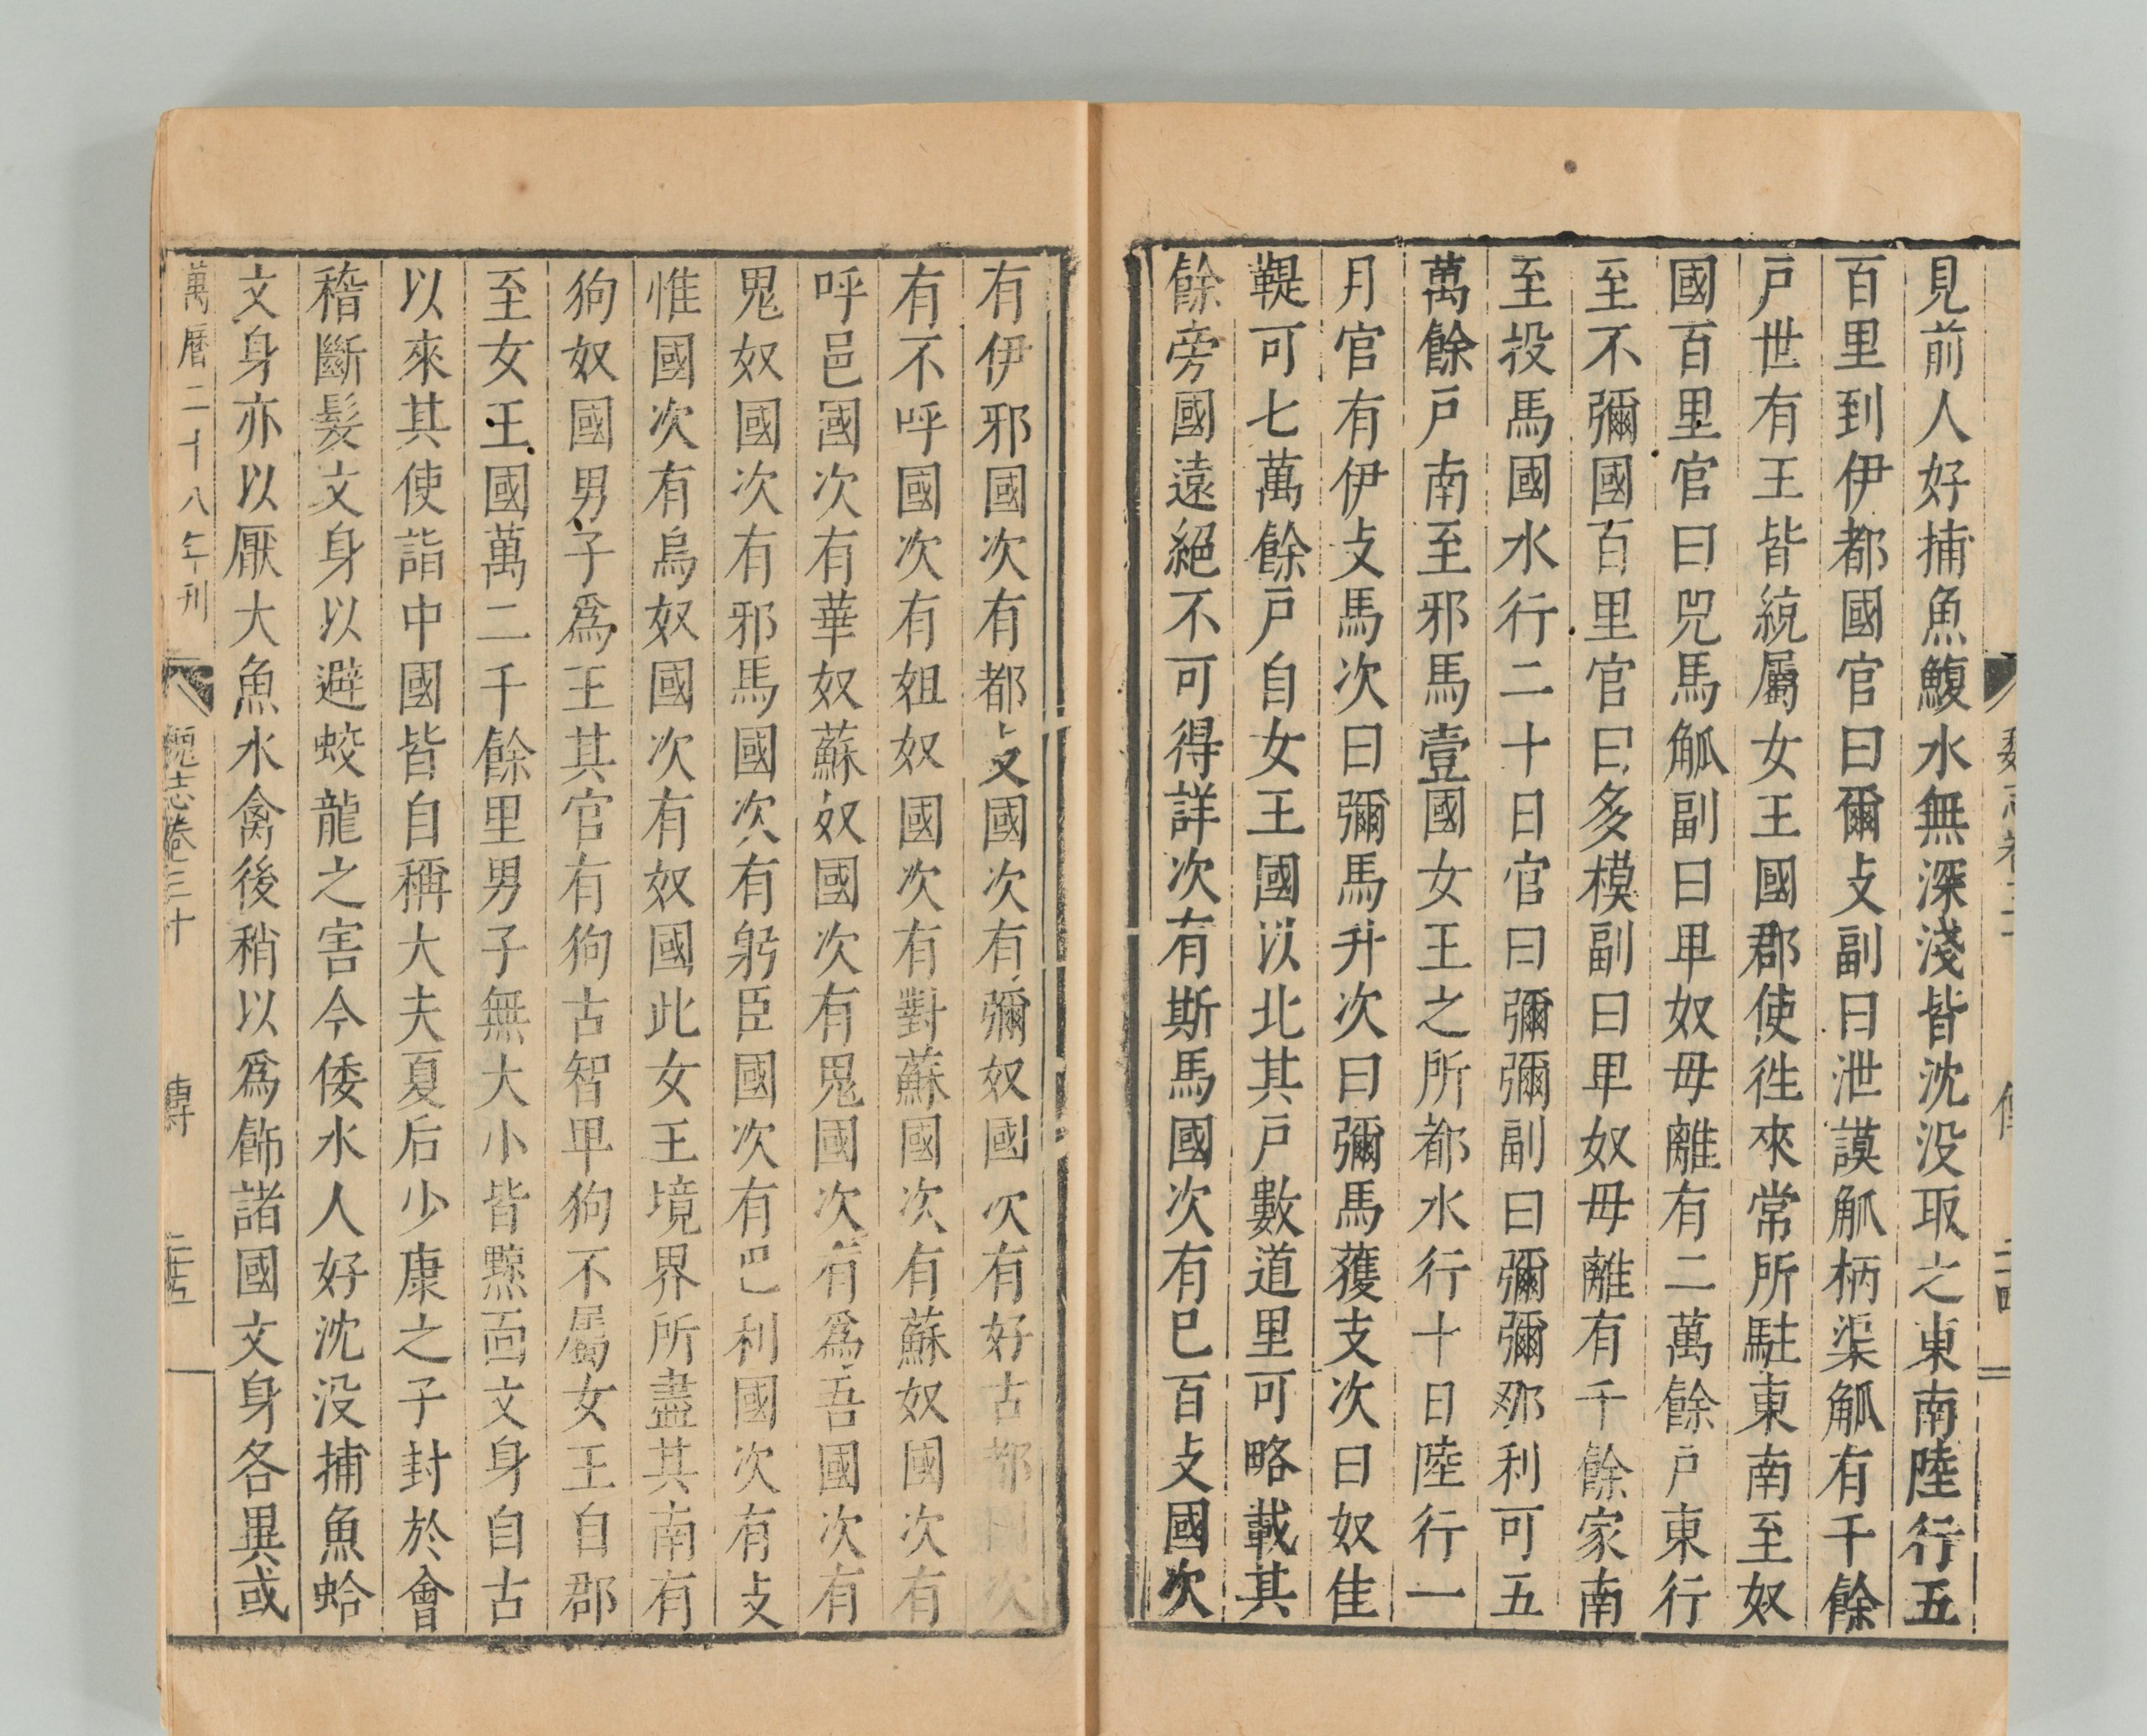 見前人好捕魚鰒水無深淺皆沈没取之東南陸行五
百里到伊都國官曰爾支副曰泄謨觚柄渠觚有千餘
戶世有王皆統屬女王國郡使徃來常所駐東南至奴
國百里官曰兕馬觚副曰卑奴毋離有二萬餘戶東行
至不彌國百里官曰多模副曰卑奴毋離有千餘家南
至投馬國水行二十日官曰彌彌副曰彌彌那利可五
萬餘戶南至邪馬壹國女王之所都水行十日陸行一
月官有伊支馬次曰彌馬升次曰彌馬獲支次曰奴佳
鞮可七萬餘戶自女王國以北其戶數道里可略載其
餘旁國遠絕不可得詳次有斯馬國次有巳百支國次
有伊邪國次有都支國次有彌奴國次有好古都國次
有不呼國次有姐奴國次有對蘇國次有蘇奴國次有
呼邑國次有華奴蘇奴國次有鬼國次有爲吾國次有
鬼奴國次有邪馬國次有躬臣國次有巴利國次有支
惟國次有烏奴國次有奴國此女王境界所盡其南有
狗奴國男子爲王其官有狗古智卑狗不屬女王自郡
至女王國萬二千餘里男子無大小皆黥面文身自古
以來其使詣中國皆自稱大夫夏后少康之子封於會
稽斷髮文身以避蛟龍之害今倭水人好沈没捕魚蛤
文身亦以厭大魚水禽後稍以爲飾諸國文身各異或
萬曆二十八年刊 魏志卷三十 傳 二十五